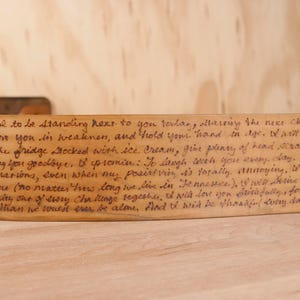 to be standing next to you today, sharing the next ch
on you in weakness, and hold your hand in age. I wi
the fridge stocked with ice cream, give plenty of head scra
you goodbye. I promise: To laugh with you every day,
even when my positivity is totally annoying,
(no matter how long we live in Tennessee), I will
out of every challenge together, I will love you faithfully,
than we would ever be alone. And I will be thankful every da